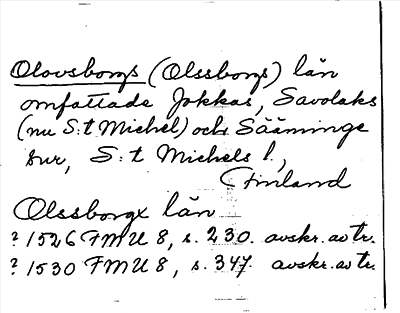 Olovsborgs (Olssborgs) län
omfattade Jokkas, Savolaks
(nu S:t Michel) och Sääminge
sur, S:t Michels l.,
Finland
Olssborgx län
? 1526 FMU 8, s. 230. avskr. av tr.
? 1530 FMU 8, s. 347. avskr. av tr.